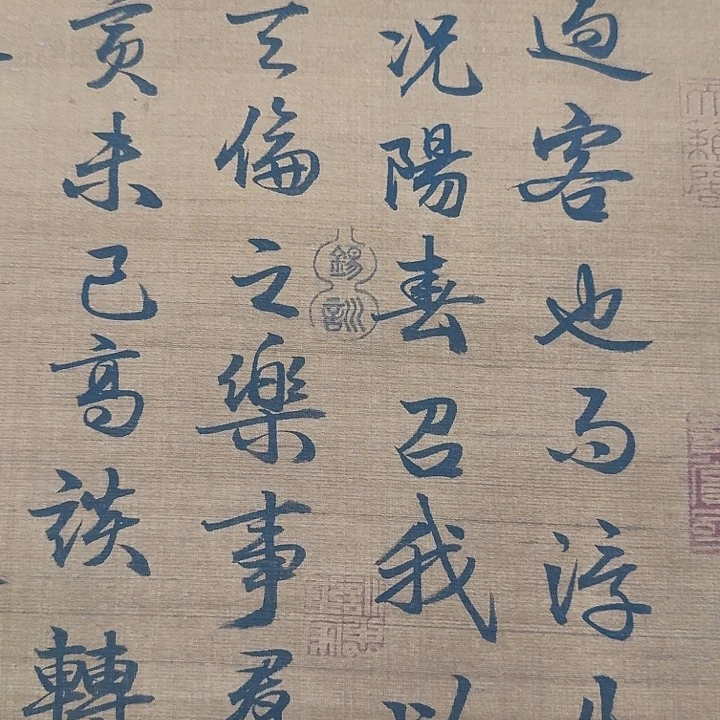 過客也而浮
况陽春召我以
天倫之樂事羣
賞未已高談轉
錫訓